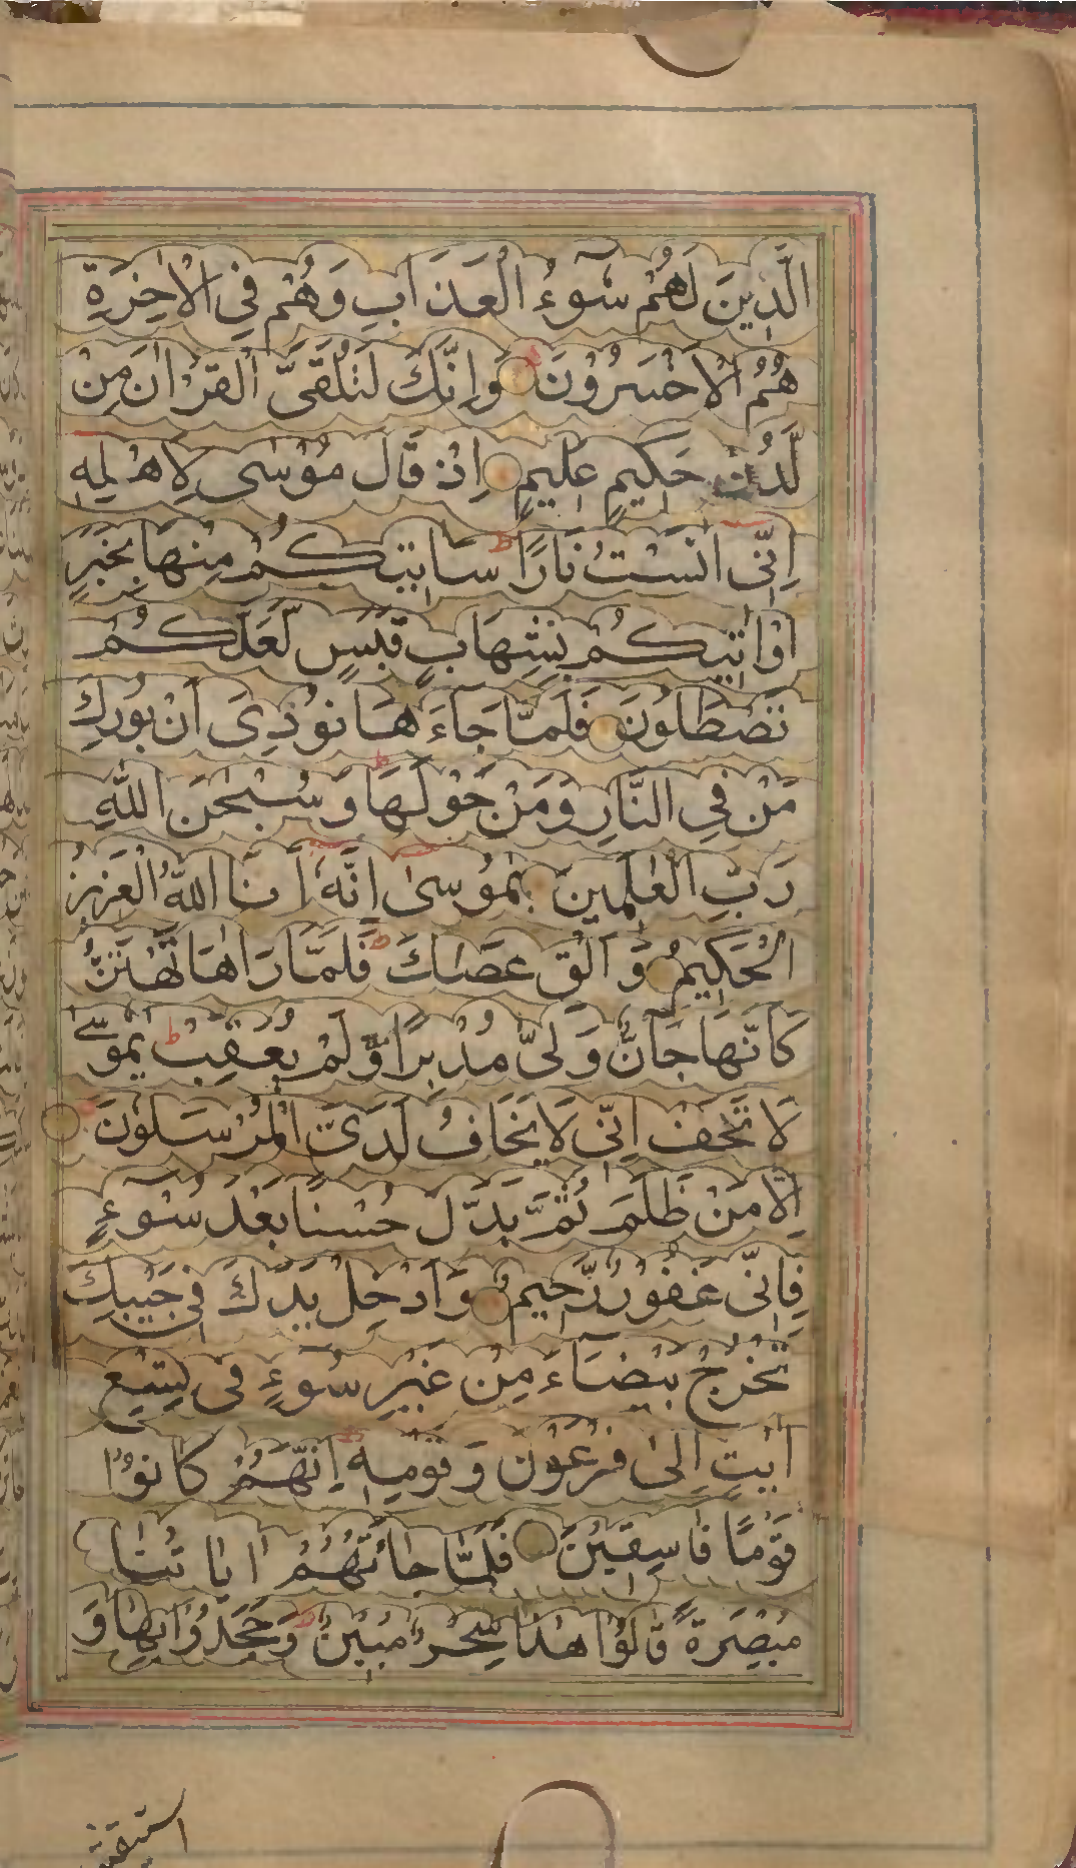 الَّذِينَ لَهُمْ سُوٓءُ الْعَذَابِ وَهُمْ فِي الْاٰخِرَةِ
هُمُ الْاَخْسَرُوْنَ وَاِنَّكَ لَتُلَقَّى الْقُرْاٰنَ مِنْ
لَّدُنْ حَكِيمٍ عَلِيمٍ اِذْ قَالَ مُوْسٰى لِاَهْلِهٖ
اِنِّى اٰنَسْتُ نَارًا ط سَاٰتِيكُمْ مِنْهَا بِخَبَرٍ
اَوْ اٰتِيكُمْ بِشِهَابٍ قَبَسٍ لَّعَلَّكُمْ
تَصْطَلُونَ فَلَمَّا جَآءَهَا نُوْدِىَ اَنْ بُورِكَ
مَنْ فِي النَّارِ وَمَنْ حَوْلَهَا ط وَسُبْحٰنَ اللّٰهِ
رَبِّ الْعٰلَمِينَ يٰمُوسىٰ اِنَّهٗ اَنَا اللّٰهُ الْعَزِيزُ
الْحَكِيمُ وَاَلْقِ عَصَاكَ ط فَلَمَّا رَاٰهَا تَهْتَزُّ
كَاَنَّهَا جَآنٌّ وَلّٰى مُدْبِرًا وَّلَمْ يُعَقِّبْ ط يٰمُوسٰى
لَا تَخَفْ اِنِّى لَا يَخَافُ لَدَىَّ الْمُرْسَلُونَ
اِلَّا مَنْ ظَلَمَ ثُمَّ بَدَّلَ حُسْنًا بَعْدَ سُوْٓءٍ
فَاِنِّى غَفُوْرٌ رَّحِيمٌ وَاَدْخِلْ يَدَكَ فِى جَيْبِكَ
تَخْرُجْ بَيْضَآءَ مِنْ غَيْرِ سُوْٓءٍ فى تِسْعِ
اٰيٰتٍ اِلٰى فِرْعَوْنَ وَقَوْمِهٖ اِنَّهُمْ كَانُوْا
قَوْمًا فَاسِقِيْنَ فَلَمَّا جَاءَتْهُمْ اٰيَاتُنَا
مُبْصِرَةً قَالُوْا هٰذَا سِحْرٌ مُبِيْنٌ وَجَحَدُوْا بِهَا وَ